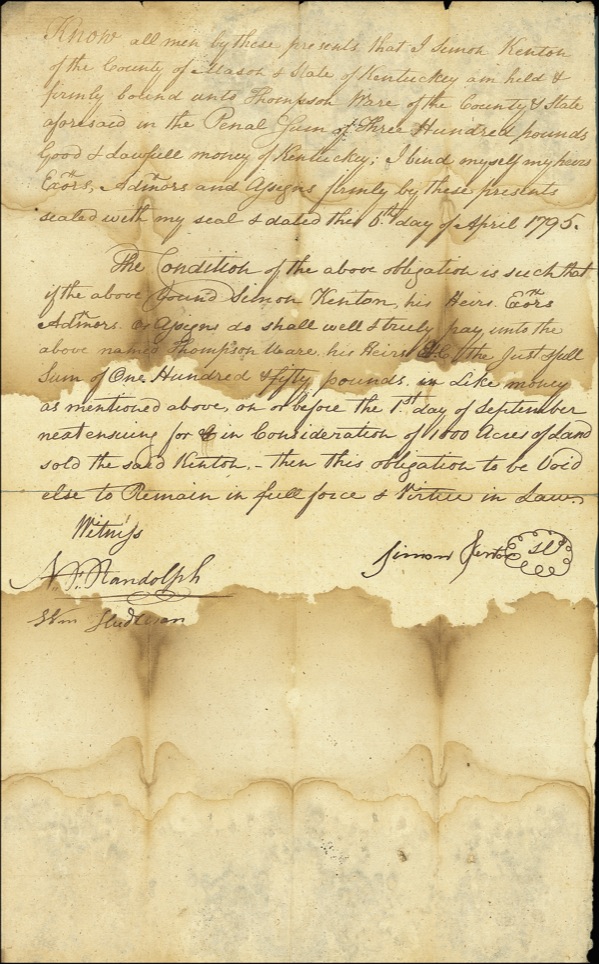 Know all men by these presents that I Simon Kenton
of the County of Mason & State of Kentuckey am held &
firmly bound unto Thompson Ware of the County & State
aforesaid in the Penal Sum of Three Hundred pounds
Good & Lawfull money of Kentuckey; I bind myself my heirs
Exors, Admors and Assigns firmly by these presents
sealed with my seal & dated this 6th day of April 1795.
The Condition of the above obligation is such that
if the above bound Simon Kenton, his Heirs. Exors
Admors. Or Assigns do shall well & truly pay unto the
above named Thompson Ware. his Heirs &c the Just & full
Sum of One Hundred & fifty pounds. in Like money
as mentioned above, on or before the 1st day of September
next ensuing for & in Consideration of 1000 Acres of Land
sold the said Kenton. - then this obligation to be Void
else to Remain in full force & Virtue in Law.
Witness
Simon Kenton
N. F. Randolph
Wm